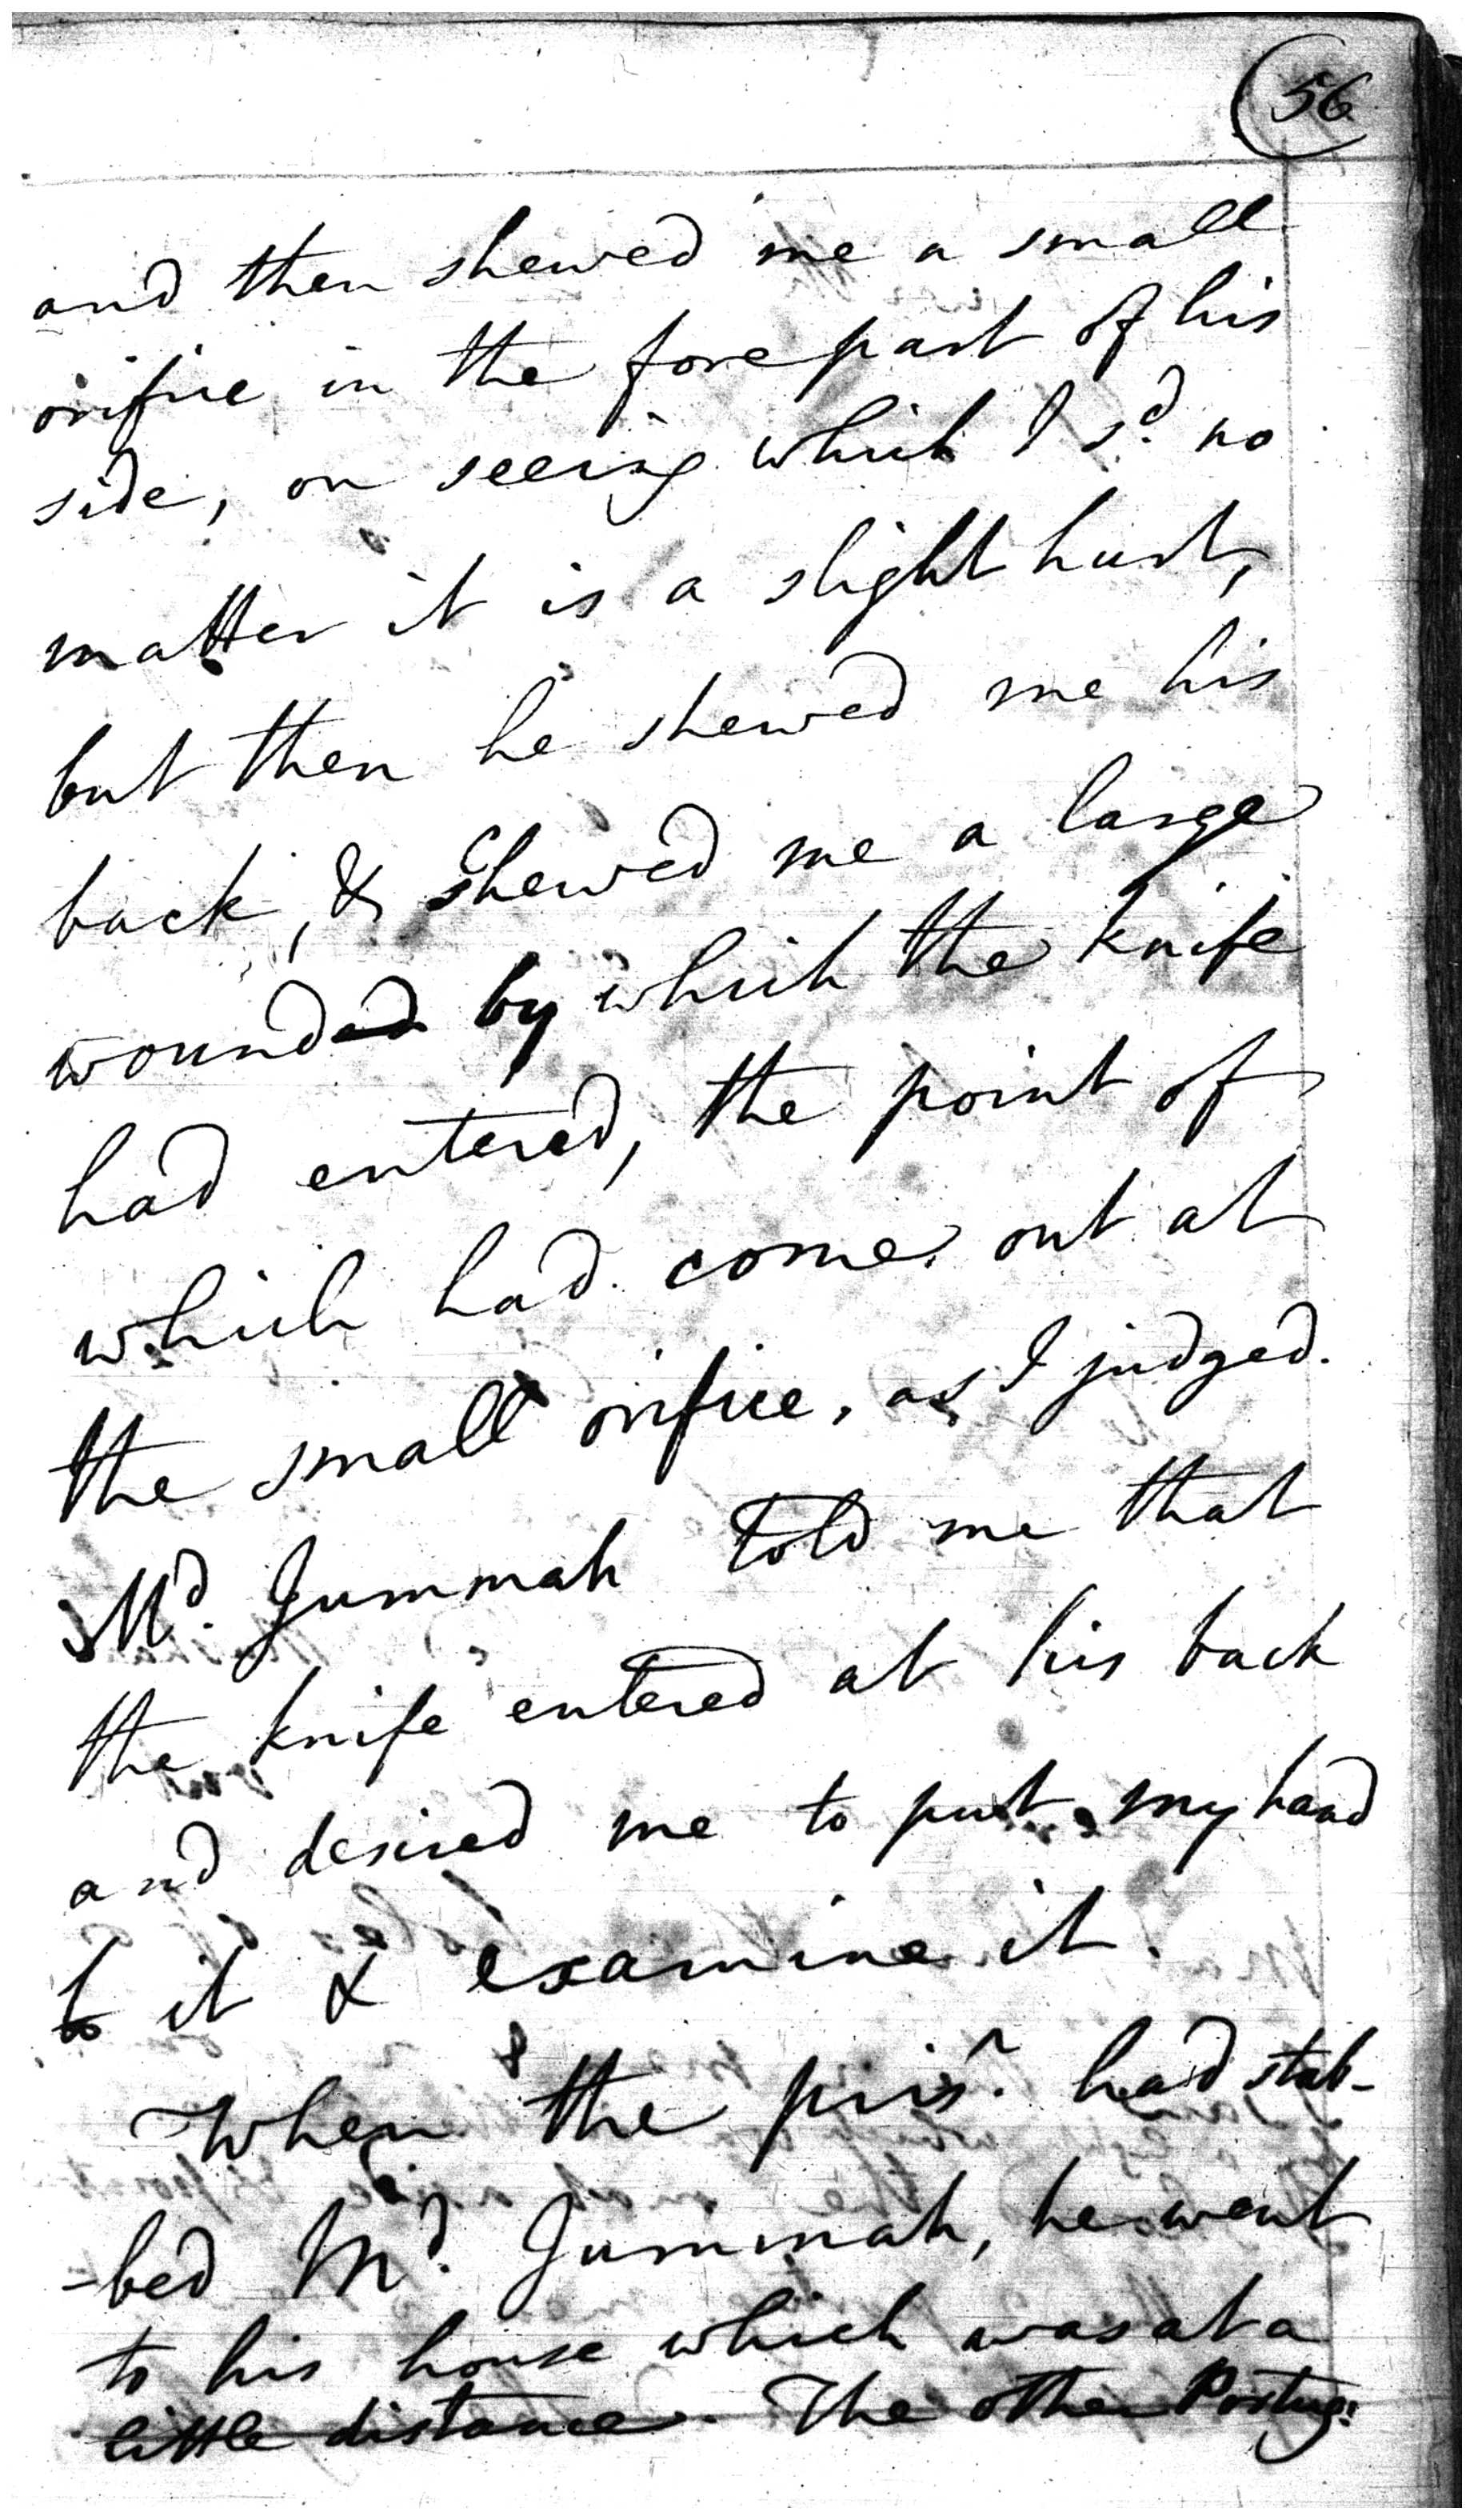 56
and then shewed me a small
orifice in the forepart of his
side, on seeing which I sd. no
matter it is a slight hurt,
but then he shewed me his
back, & shewed me a large
wound by which the knife
had entered, the point of
which had come out at
the small orifice, as I judged.
Md. Jummah told me that
the knife entered at his back
and desired me to put my hand
to it & examine it.
When the prisr. had stab-
-bed Md. Jummah, he went
to his house which was at a
little distance. The other Portug: